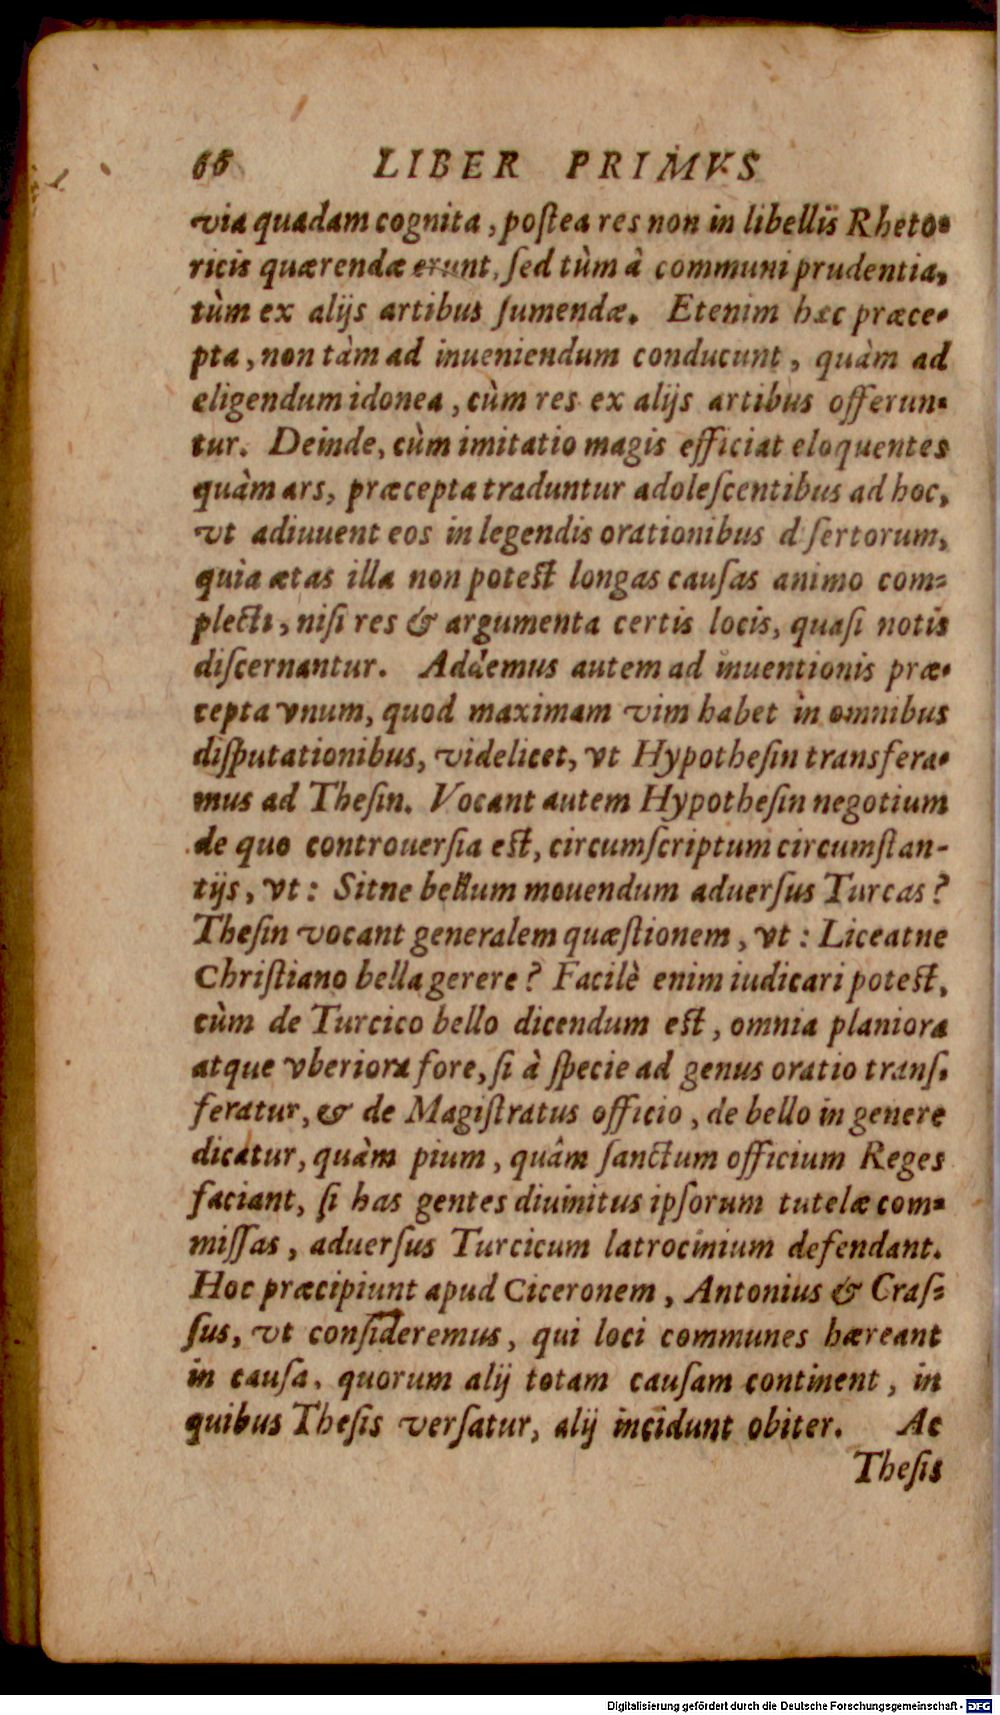 66 LIBER PRIMVS
via quadam cognita, poſtea res non in libellis Rheto-
ricis quærendæ erunt, ſed tùm à communi prudentia,
tùm ex alijs artibus ſumendæ. Etenim hæc præce-
pta, non tàm ad inueniendum conducunt, quàm ad
eligendum idonea, cùm res ex alijs artibus offerun-
tur. Deinde, cùm imitatio magis efficiat eloquentes
quàm ars, præcepta traduntur adoleſcentibus ad hoc,
vt adiuuent eos in legendis orationibus d ſertorum,
quia ætas illa non poteſt longas cauſas animo com-
plecti, niſi res & argumenta certis locis, quaſi notis
diſcernantur. Addemus autem ad inuentionis præ-
cepta vnum, quod maximam vim habet in omnibus
diſputationibus, videlicet, vt Hypotheſin transfera-
mus ad Theſin. Vocant autem Hypotheſin negotium
de quo controuerſia eſt, circumſcriptum circumſtan-
tijs, vt: Sitne bellum mouendum aduerſus Turcas?
Theſin vocant generalem quæſtionem, vt: Liceatne
Chriſtiano bella gerere? Facilè enim iudicari poteſt,
cùm de Turcico bello dicendum eſt, omnia planiora
atque vberiora fore, ſi à ſpecie ad genus oratio tranſ-
feratur, & de Magiſtratus officio, de bello in genere
dicatur, quàm pium, quâm ſanctum officium Reges
faciant, ſi has gentes diuinitus ipſorum tutelæ com-
miſſas, aduerſus Turcicum latrocinium defendant.
Hoc præcipiunt apud Ciceronem, Antonius & Craſ-
ſus, vt conſideremus, qui loci communes hæreant
in cauſa, quorum alij totam cauſam continent, in
quibus Theſis verſatur, alij incidunt obiter. Ac
Theſis
Digitalisierung gefördert durch die Deutsche Forschungsgemeinschaft - DFG